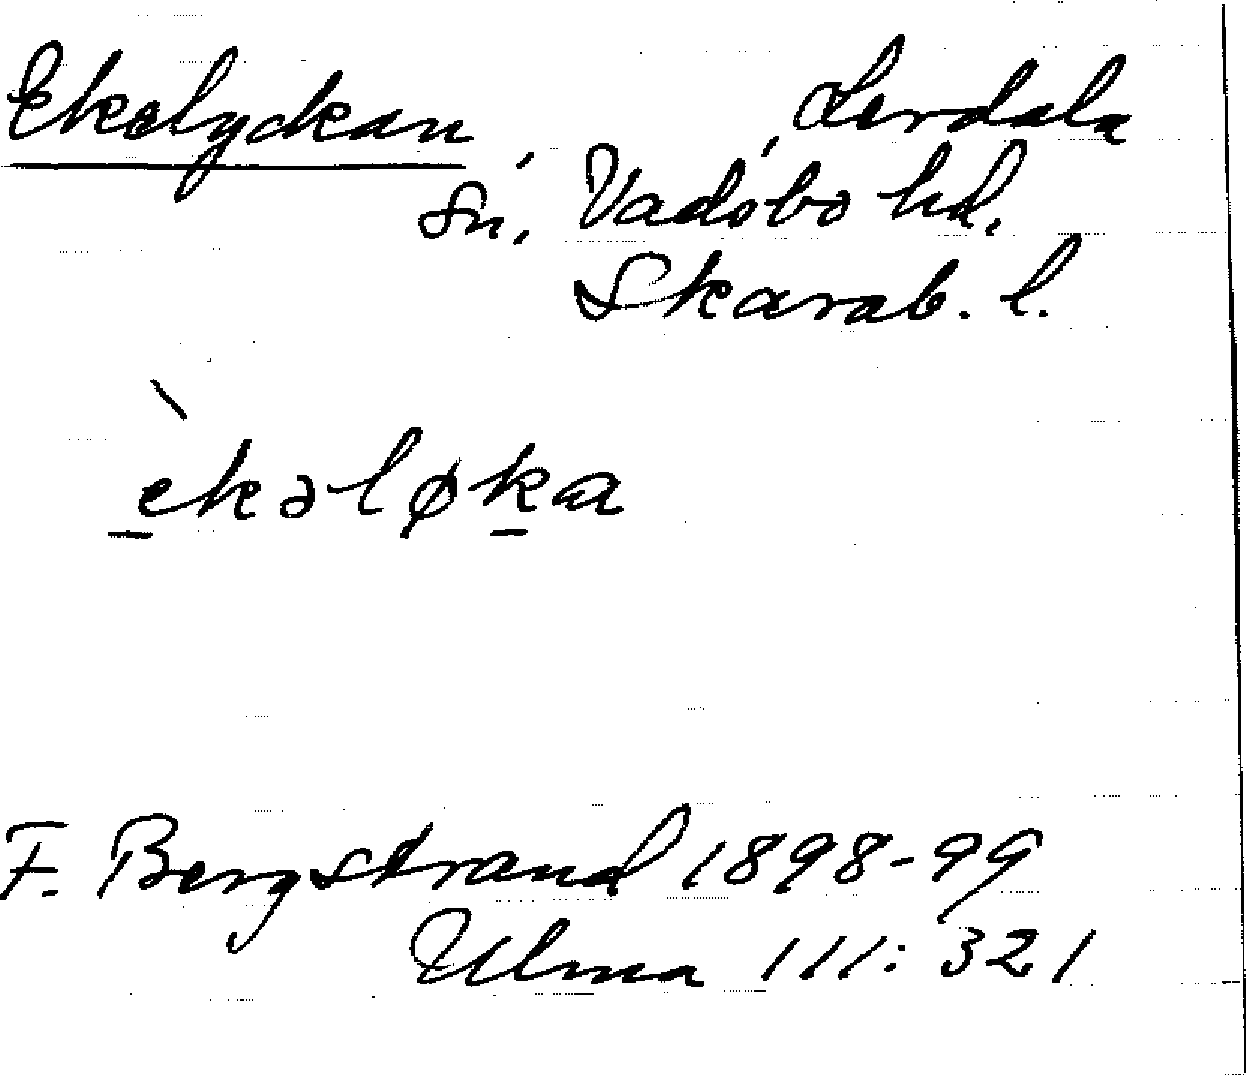 Ekelyckan, Lerdala
sn, Vadsbo hd,
Skarab. l.
èkəløka
F. Bergstrand 1898-99
Ulma 111:321